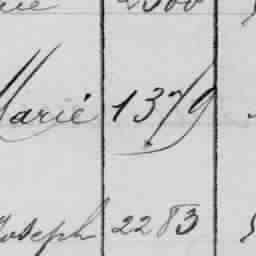 Marié 1379
Joseph 2283